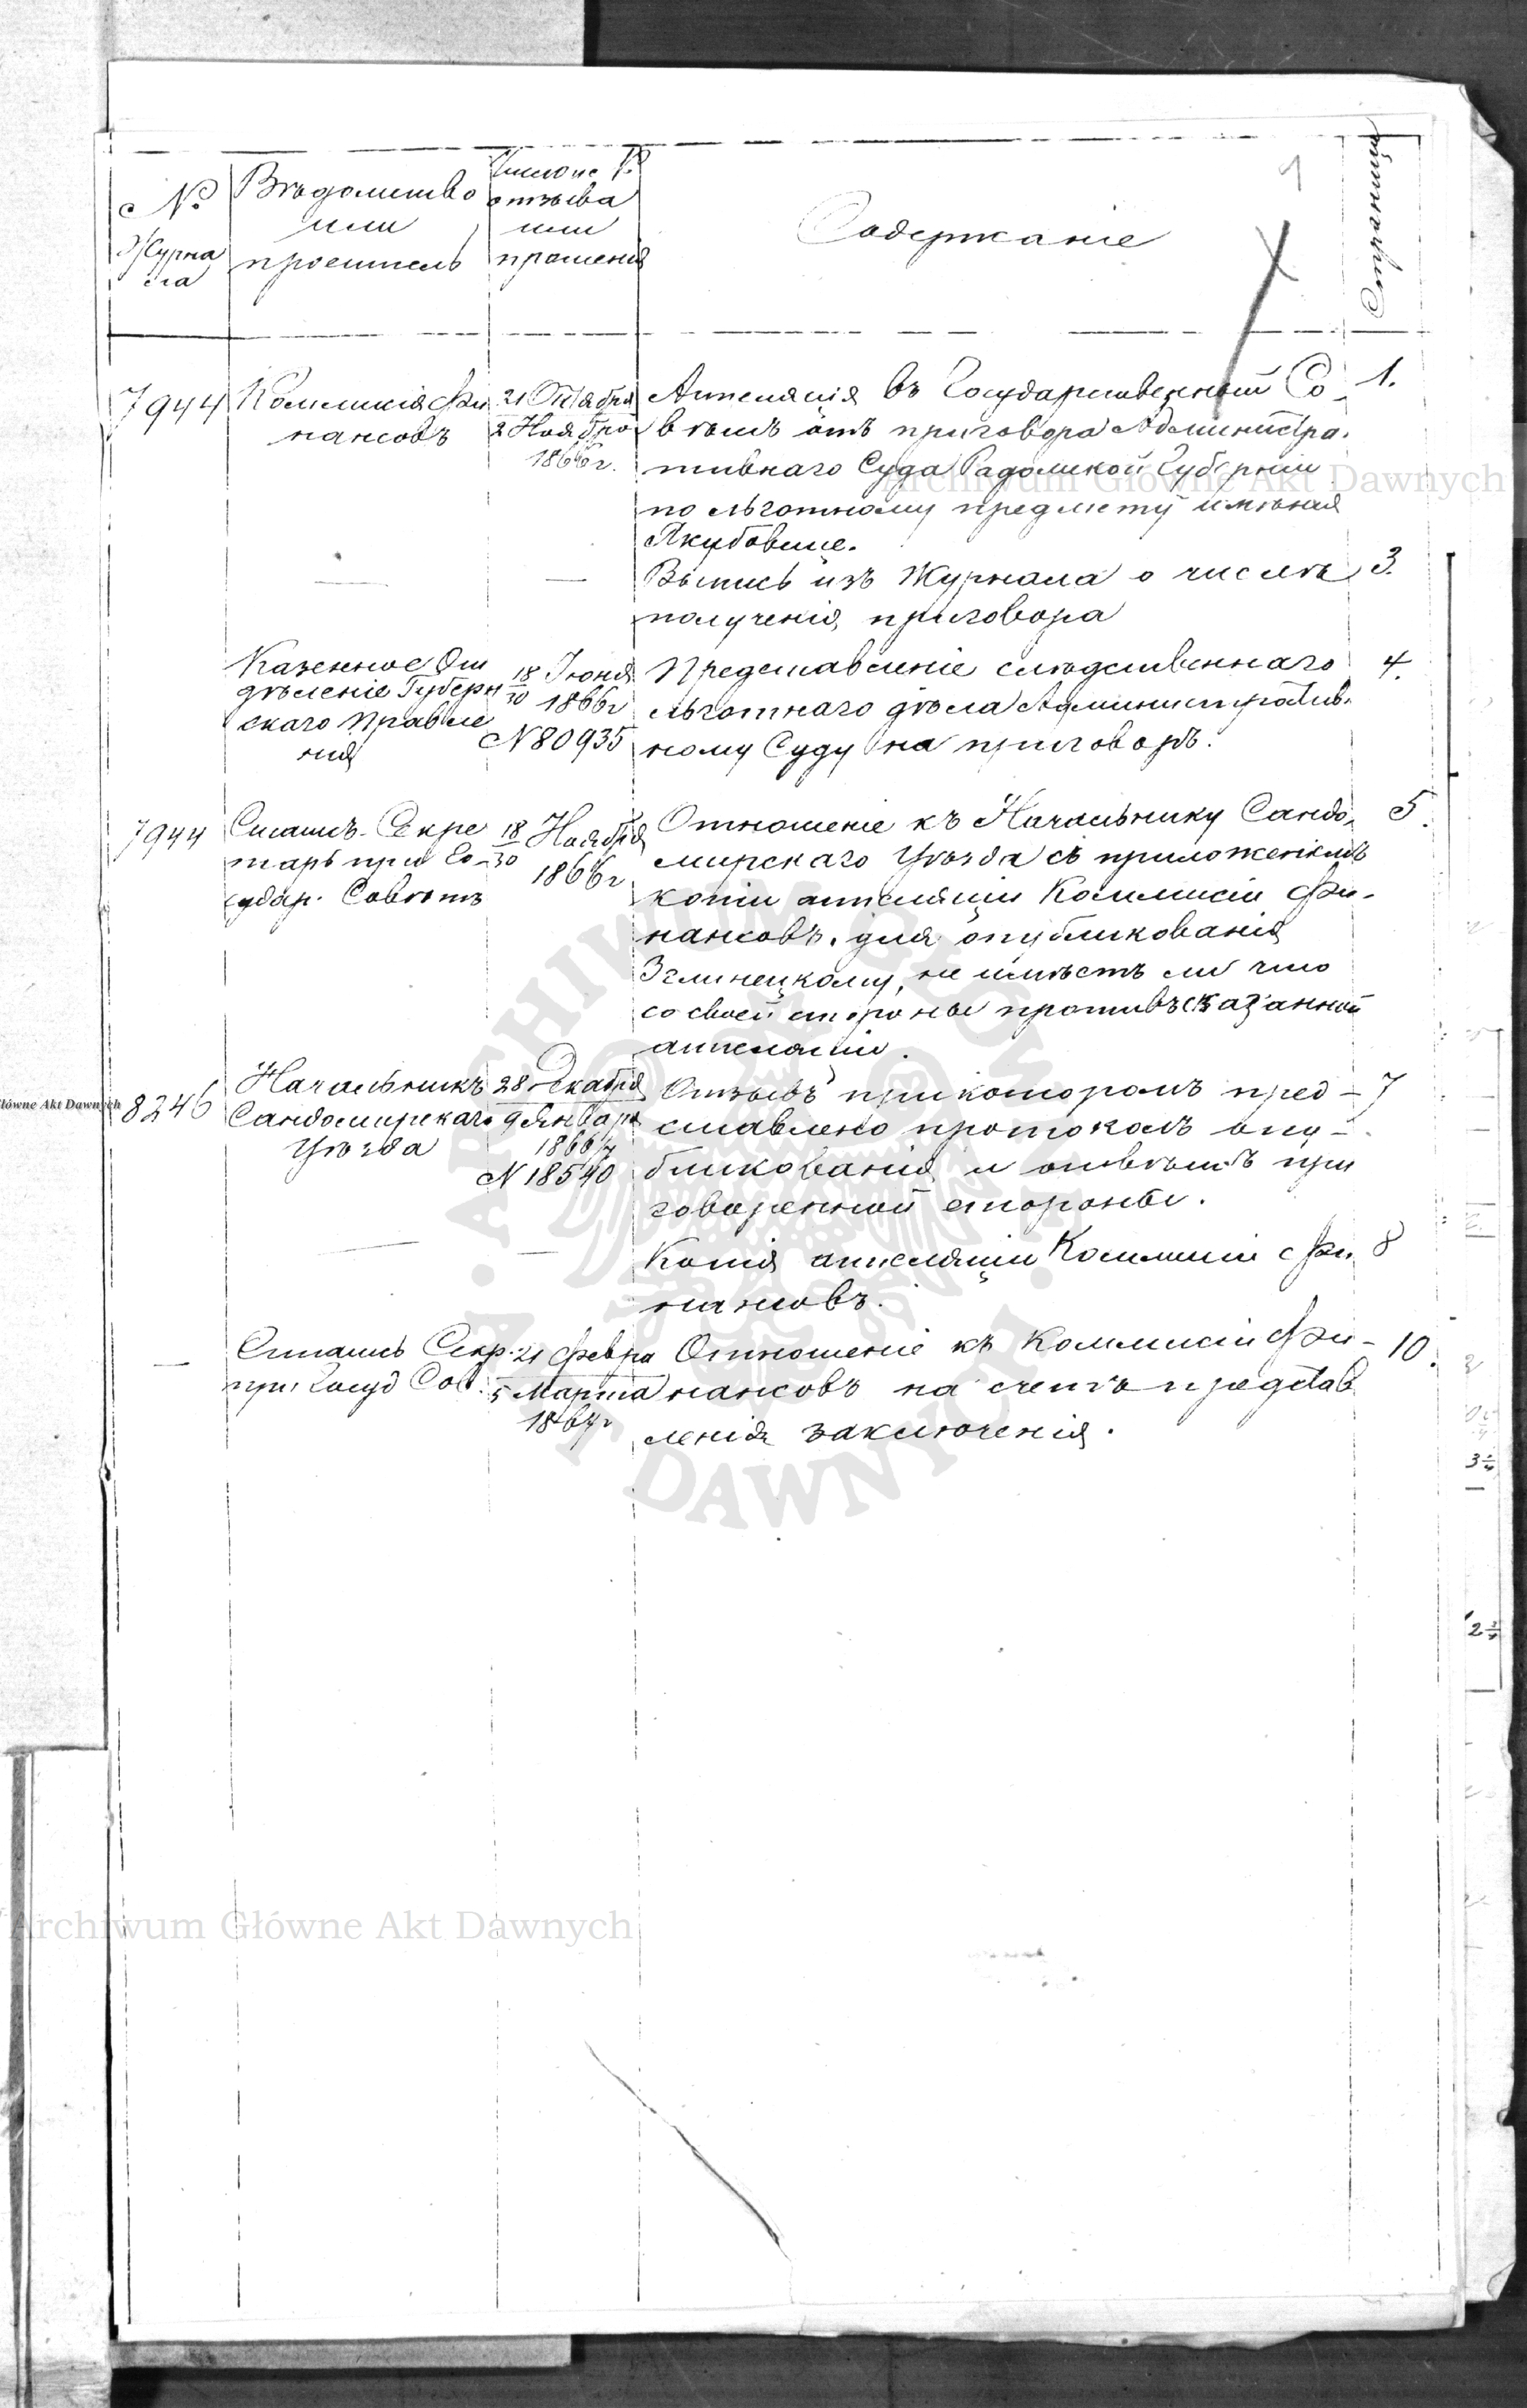 1
№ Журна
ла
Вѣдомство
или
проситель
Число и №
отзыва
или
прошенія
Содержаніе
Страницы
7944
Коммисія Фи
нансовъ
21 Октября
2 Ноября
1866 г.
Аппеляція въ Государственный Со
вѣтъ отъ приговора Администра.
тивнаго Суда Радомской Губерніи
по льготному предмету имѣнія
Якубовице.
1.
Выпись изъ Журнала о числѣ
полученія приговора
3.
Казенное От
дѣленіе Губерн
скаго Правле
нія
18 Іюня
30 1866 г
№ 80935
Представленіе слѣдственнаго
льготнаго дѣла Административ.
ному Суду на приговоръ.
4.
7944
Статсъ-Секре
тарь при Го-
судар. Совѣтѣ
18 Ноября
30
1866 г
Отношеніе къ Начальнику Сандо
мирскаго Уѣзда съ приложеніемъ
копіи аппеляціи Коммисіи Фи-
нансовъ, для опубликованія
Зглинецкому, не имѣетъ ли что
со своей стороны противъ сказанной
аппеляціи.
5.
8246
Начальникъ
Сандомирскаго
Уѣзда
28 Декабря
9 Января
1866/7
№ 18540
Отзывъ при которомъ пред-
ставлено протоколъ опу-
бликованія и отвѣтъ при
говоренной стороны.
7
Копія аппеляціи Коммисіи Фи.
нансовъ.
8
Статсъ Секр.
при Госуд Сов.
21 Февра
5 Марта
1867 г
Отношеніе къ Коммисіи Фи-
нансовъ на счетъ представ
ленія заключенія.
10.
Archiwum Główne Akt Dawnych
Archiwum Główne Akt Dawnych
ARCHIWUM GŁÓWNE AKT DAWNYCH